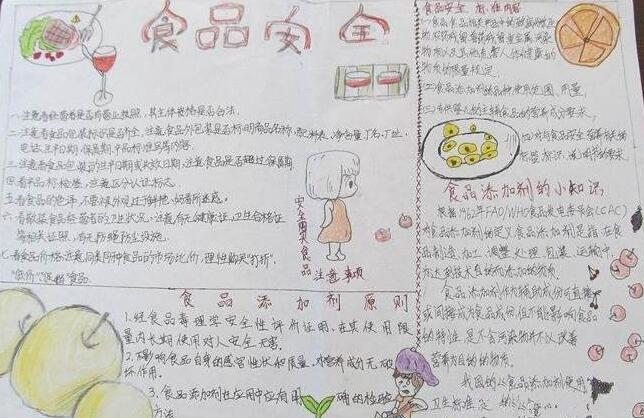 食品安全
一.注意看经营者是否有营业执照,其主体资格是否合法.
二.注意看食品包装标识是否齐全,注意食品外包装是否标明商品名称,配料表,净含量,厂名,厂址,
电话,生产日期,保质期,产品标准号等内容.
三.注意看食品包装的生产日期或失效日期,注意食品是否超过保质期
四.看产品标签,注意区分认证标志.
五.看食品的色泽,不要被外观过于鲜艳,好看所迷惑.
六.看散装食品经营者的卫生状况,注意有无健康证,卫生合格证
等相关证照,有无防蝇防尘设施.
七.看食品价格,注意同类同种食品的市场比价,理性购买"打折",
"低价""促销"食品.
安全购买食品
注意事项
食品添加剂原则
1.经食品毒理学安全性评价证明,在其使用限
量内长期使用对人安全无害.
2.不影响食品自身的感官性状和质量,对营养成分无破
坏作用.
3.食品添加剂应用中应有明确的检验
方法
食品安全标准内容
(二)食品添加剂的品种使用范围,用量.
(三)专供婴幼儿的主辅食品的营养成分要求.
(四)对与食品安全营养有关的
标签,标识,说明书的要求.
食品添加剂的小知识
根据1962年FAO/WHO食品法典委员会(CAC)
对食品添加剂的定义,食品添加剂是指在食
品制造,加工,调整,处理,包装,运输中,
为达到技术目的而添加的物质.
食品添加剂作为辅助成分可直接
或间接成为食品成分,但不能影响食品
的特性,是不含污染物并不以改善
营养为目的的物质.
我国的《食品添加剂使用
卫生标准